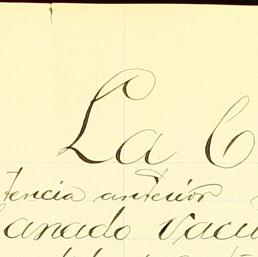 La C
tencia anterior
anado vacu